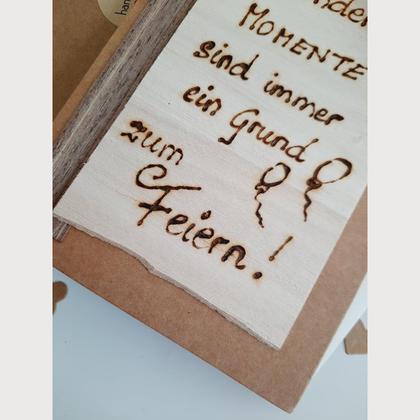 MOMENTE
sind immer
ein Grund
zum
Feiern!